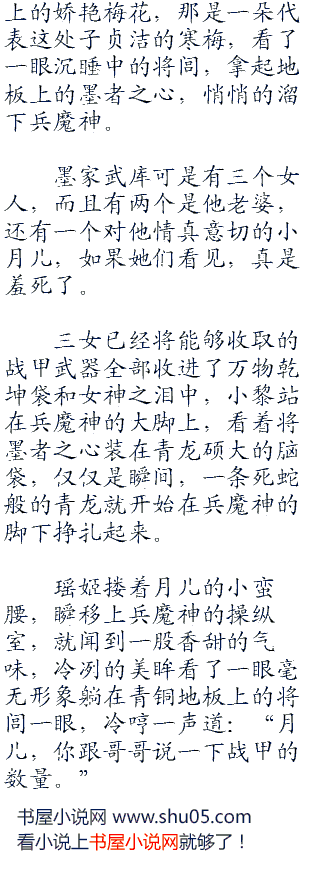 上的娇艳梅花，那是一朵代
表这处子贞洁的寒梅，看了
一眼沉睡中的将闾，拿起地
板上的墨者之心，悄悄的溜
下兵魔神。
墨家武库可是有三个女
人，而且有两个是他老婆，
还有一个对他情真意切的小
月儿，如果她们看见，真是
羞死了。
三女已经将能够收取的
战甲武器全部收进了万物乾
坤袋和女神之泪中，小黎站
在兵魔神的大脚上，看着将
墨者之心装在青龙硕大的脑
袋，仅仅是瞬间，一条死蛇
般的青龙就开始在兵魔神的
脚下挣扎起来。
瑶姬搂着月儿的小蛮
腰，瞬移上兵魔神的操纵
室，就闻到一股香甜的气
味，冷冽的美眸看了一眼毫
无形象躺在青铜地板上的将
闾一眼，冷哼一声道：“月
儿，你跟哥哥说一下战甲的
数量。”
书屋小说网 www.shu05.com
看小说上书屋小说网就够了！